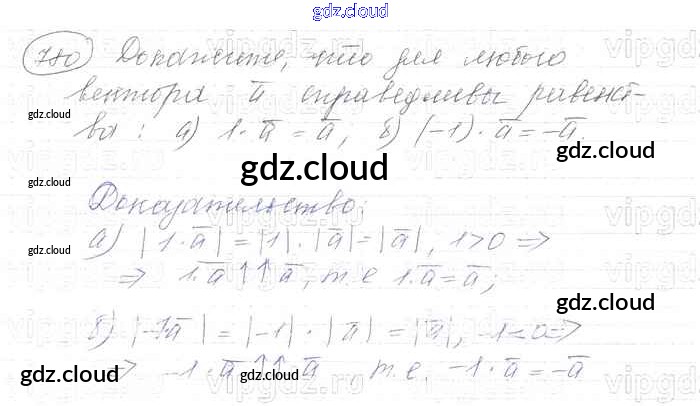 gdz.cloud
780 Докажите, что для любого
вектора a̅ справедливы равенст-
ва: а) 1·a̅ = a̅, б) (-1)·a̅ = -a̅.
gdz.cloud
gdz.cloud
gdz.cloud
gdz.cloud
Доказательство:
а) |1·a̅| = |1|·|a̅| = |a̅|, 1>0 =>
gdz.cloud
=> 1·a̅ ↑↑ a̅, т.е 1·a̅ = a̅;
gdz.cloud
б) |-1a̅| = |-1|·|a̅| = |a̅|, -1<0 =>
=> -1·a̅ ↑↑ -a̅, т.е. -1·a̅ = -a̅
gdz.cloud
gdz.cloud
gdz.cloud